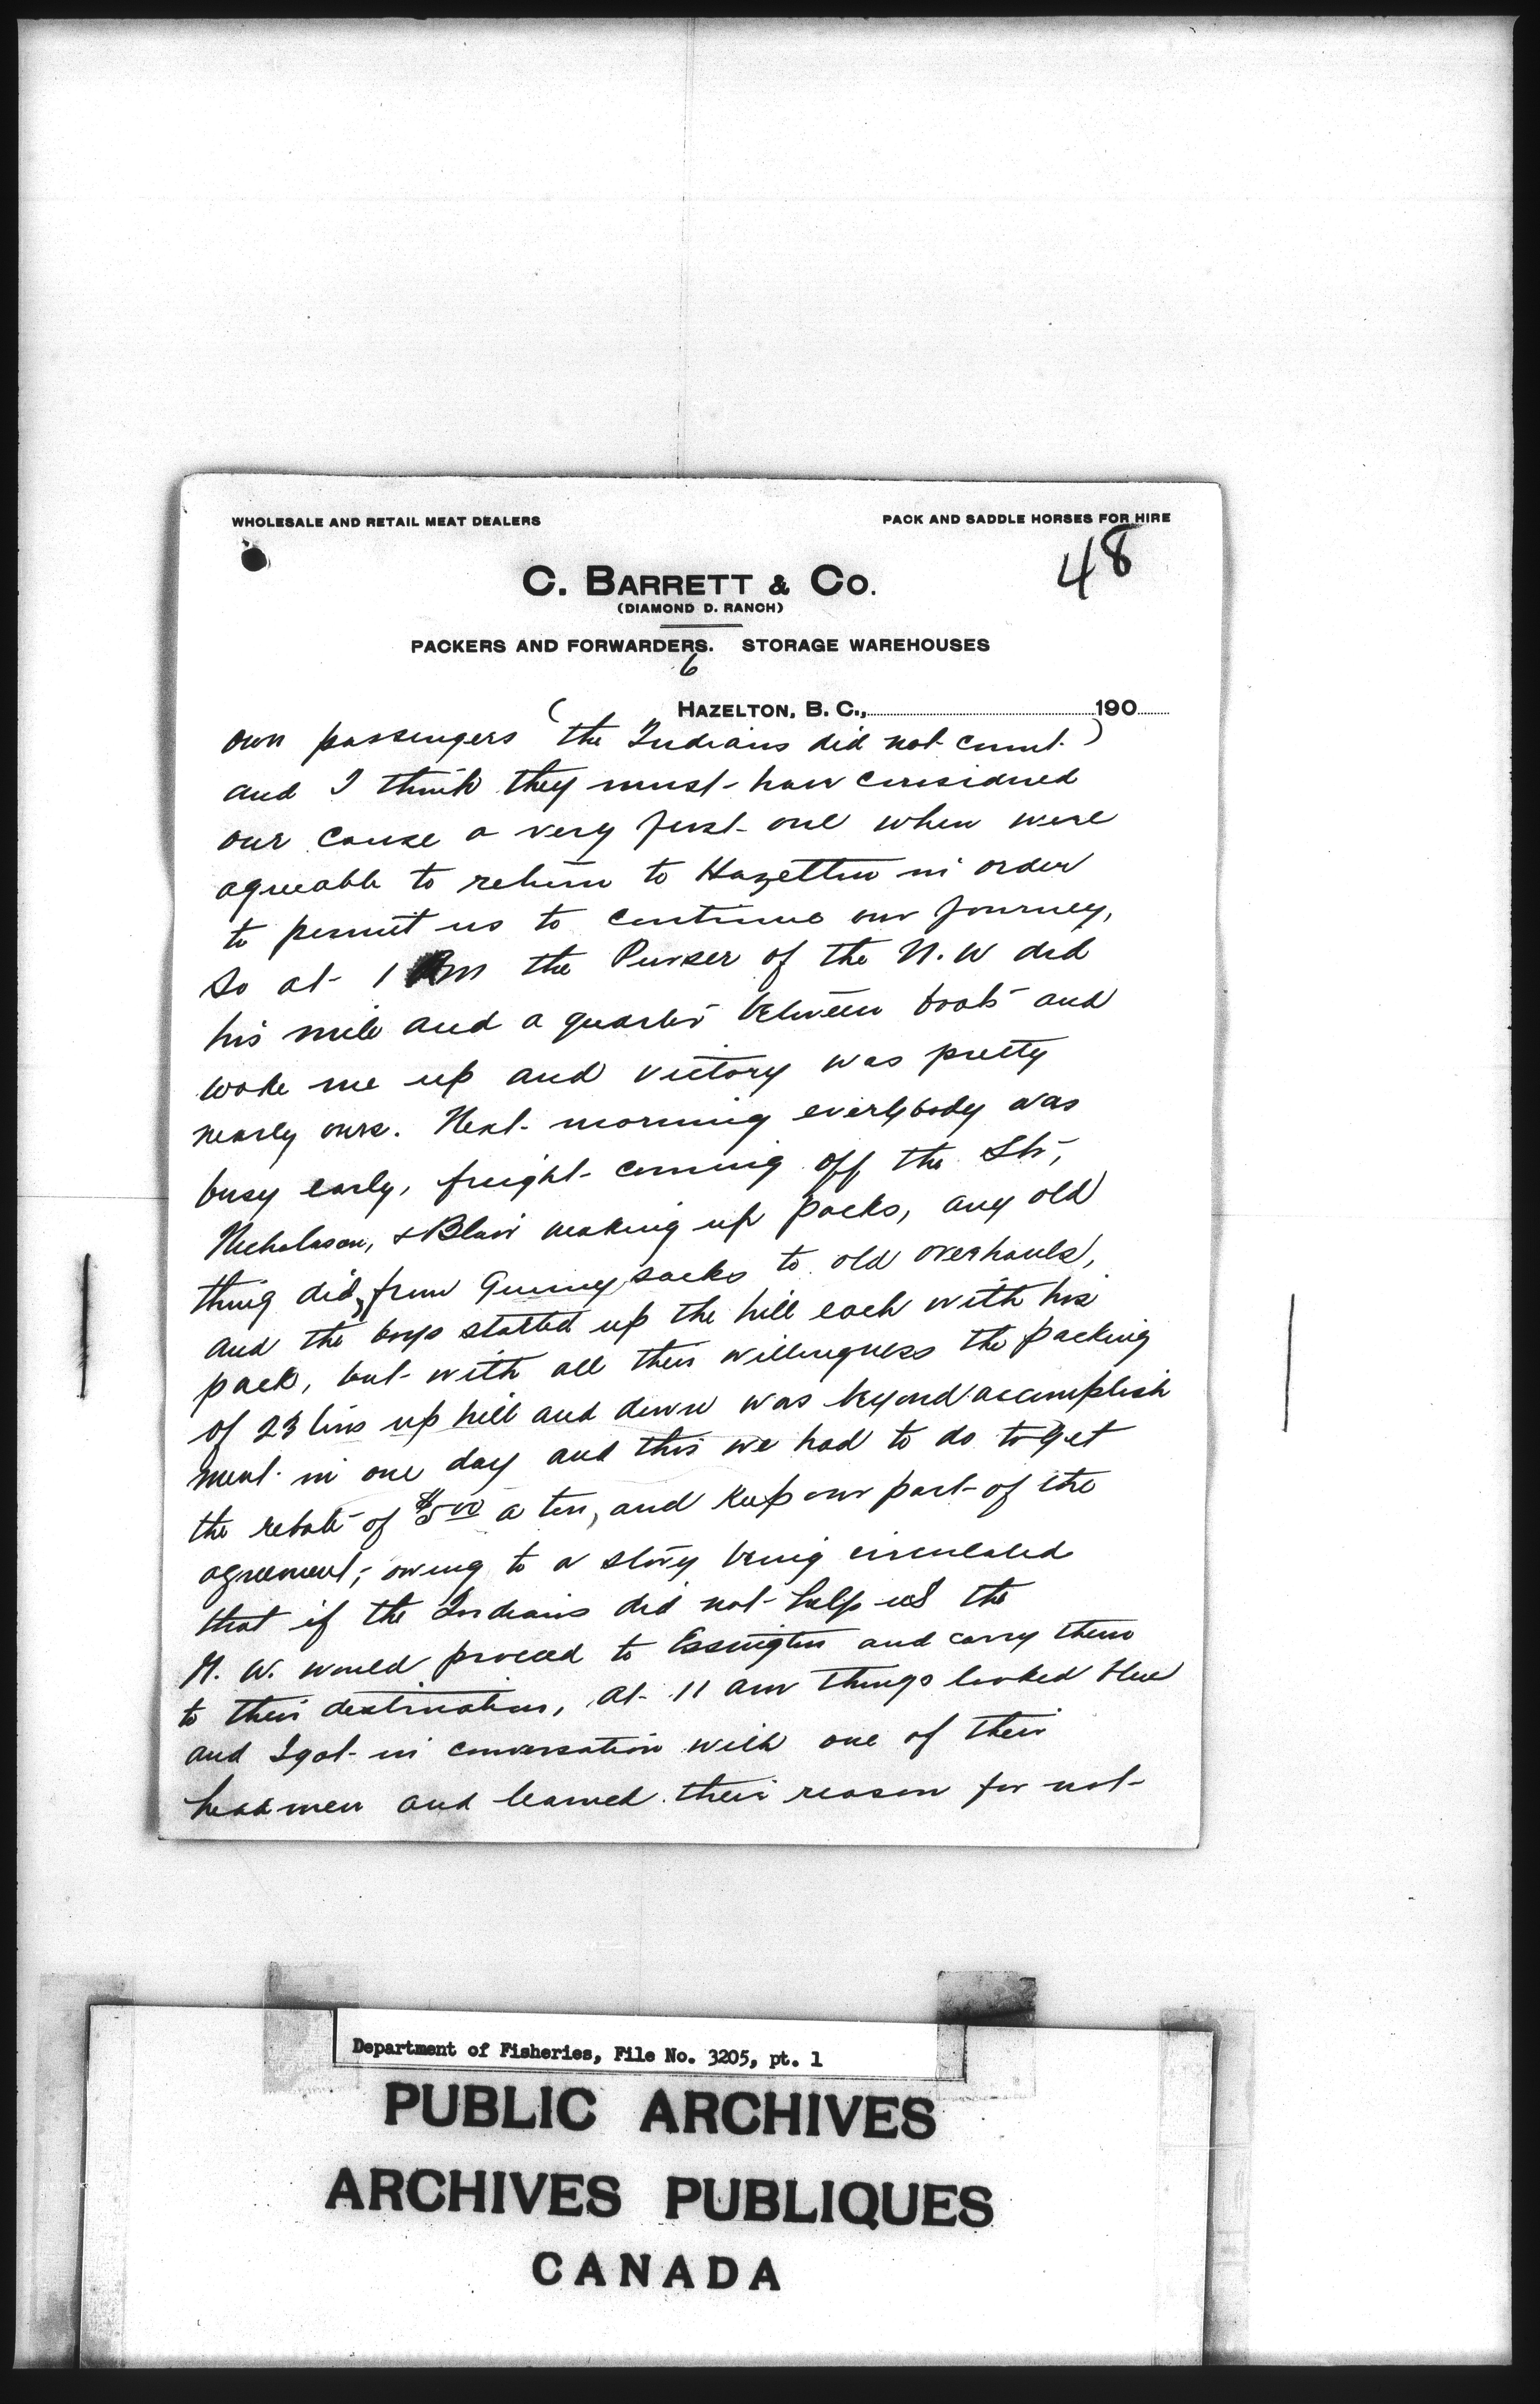 WHOLESALE AND RETAIL MEAT DEALERS
PACK AND SADDLE HORSES FOR HIRE
48
C. BARRETT & CO.
(DIAMOND D. RANCH)
PACKERS AND FORWARDERS. STORAGE WAREHOUSES
6
HAZELTON, B. C., 190
own passengers (the Indians did not count)
and I think they must have considered
our cause a very just one when were
agreeable to return to Hazelton in order
to permit us to continue our journey,
so at 1 the Purser of the N. W did
his mile and a quarter between boats and
woke me up and victory was pretty
nearly ours. Next morning everybody was
busy early, freight coming off the Str,
Nicholason, & Blair making up packs, any old
thing did, from Gunney sacks to old overhauls,
and the boys started up the hill each with his
pack, but with all their willingness the packing
of 23 tins up hill and down was beyond accomplish
ment in one day and this we had to do to get
the rebate of $5 00 a ton, and keep our part of the
agreement; owing to a story being circulated
that if the Indians did not help us the
N. W. would proceed to Essington and carry them
to their destination, at 11 am things looked blue
and I got in conversation with one of their
head men and learned their reason for not
Department of Fisheries, File No. 3205, pt. 1
PUBLIC ARCHIVES
ARCHIVES PUBLIQUES
CANADA